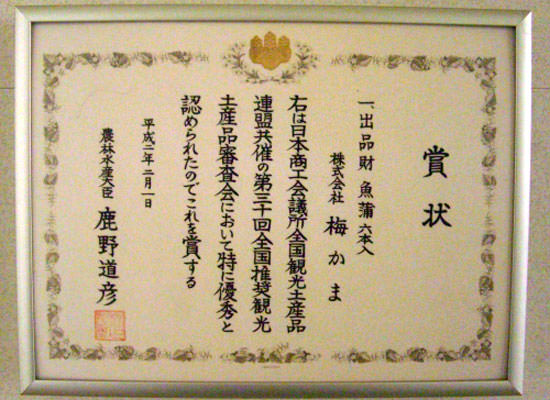 賞状
一、出品財 魚蒲 六本入
株式会社 梅かま
右は日本商工会議所全国観光土産品
連盟共催の第三十回全国推奨観光
土産品審査会において特に優秀と
認められたのでこれを賞する
平成二年二月一日
農林水産大臣 鹿野道彦